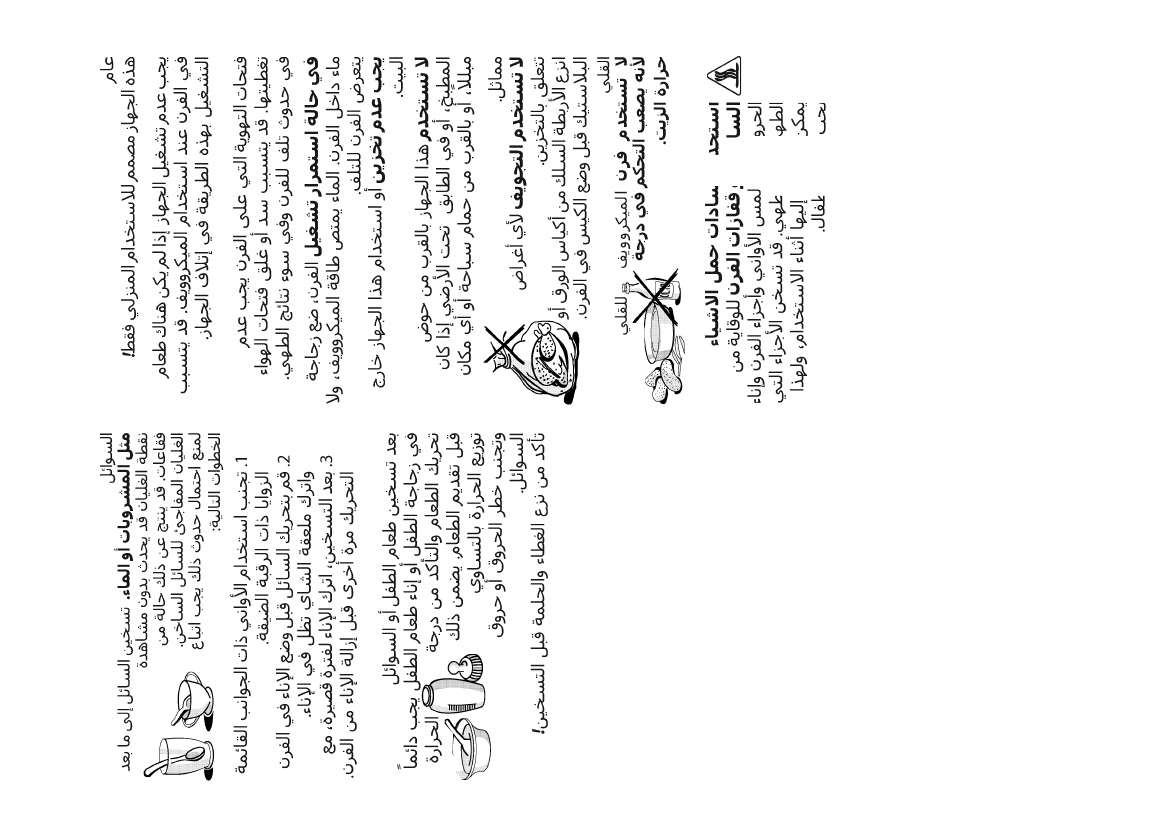 عام
هذه الجهاز مصمم للاستخدام المنزلي فقط!
يجب عدم تشغيل الجهاز إذا لم يكن هناك طعام
في الفرن عند استخدام الميكروويف. قد يتسبب
التشغيل بهذه الطريقة في إتلاف الجهاز.
فتحات التهوية التي على الفرن يجب عدم
تغطيتها. قد يتسبب سد أو غلق فتحات الهواء
في حدوث تلف للفرن وفي سوء نتائج الطهي.
في حالة استمرار تشغيل الفرن، ضع زجاجة
ماء داخل الفرن. الماء يمتص طاقة الميكروويف، ولا
يتعرض الفرن للتلف.
يجب عدم تخزين أو استخدام هذا الجهاز خارج
البيت.
لا تستخدم هذا الجهاز بالقرب من حوض
المطبخ، أو في الطابق تحت الأرضي إذا كان
مبللاً، أو بالقرب من حمام سباحة أو أي مكان
مماثل.
لا تستخدم التجويف لأي أغراض
تتعلق بالتخزين.
انزع الأربطة السلك من أكياس الورق أو
البلاستيك قبل وضع الكيس في الفرن.
القلي
لا تستخدم فرن الميكروويف للقلي
لأنه يصعب التحكم في درجة
حرارة الزيت.
استخد
سادات حمل الأشياء
السا
قفازات الفرن للوقاية من
الحرو
لمس الأواني وأجزاء الفرن وإناء
الطه
طهي. قد تسخن الأجزاء التي
يمكن
إليها أثناء الاستخدام، ولهذا
نحب
طفال.
السوائل
مثل المشروبات أو الماء. تسخين السائل إلى ما بعد
نقطة الغليان قد يحدث بدون مشاهدة
فقاعات. قد ينتج عن ذلك حالة من
الغليان المفاجئ للسائل الساخن.
لمنع احتمال حدوث ذلك يجب اتباع
الخطوات التالية:
1. تجنب استخدام الأواني ذات الجوانب القائمة
الزوايا ذات الرقبة الضيقة.
2. قم بتحريك السائل قبل وضع الإناء في الفرن
واترك ملعقة الشاي تظل في الإناء.
3. بعد التسخين، اترك الإناء لفترة قصيرة، مع
التحريك مرة أخرى قبل إزالة الإناء من الفرن.
بعد تسخين طعام الطفل أو السوائل
في زجاجة الطفل أو إناء طعام الطفل يجب دائماً
تحريك الطعام والتأكد من درجة الحرارة
قبل تقديم الطعام. يضمن ذلك
توزيع الحرارة بالتساوي
وتجنب خطر الحروق أو حروق
السوائل.
تأكد من نزع الغطاء والحلمة قبل التسخين!